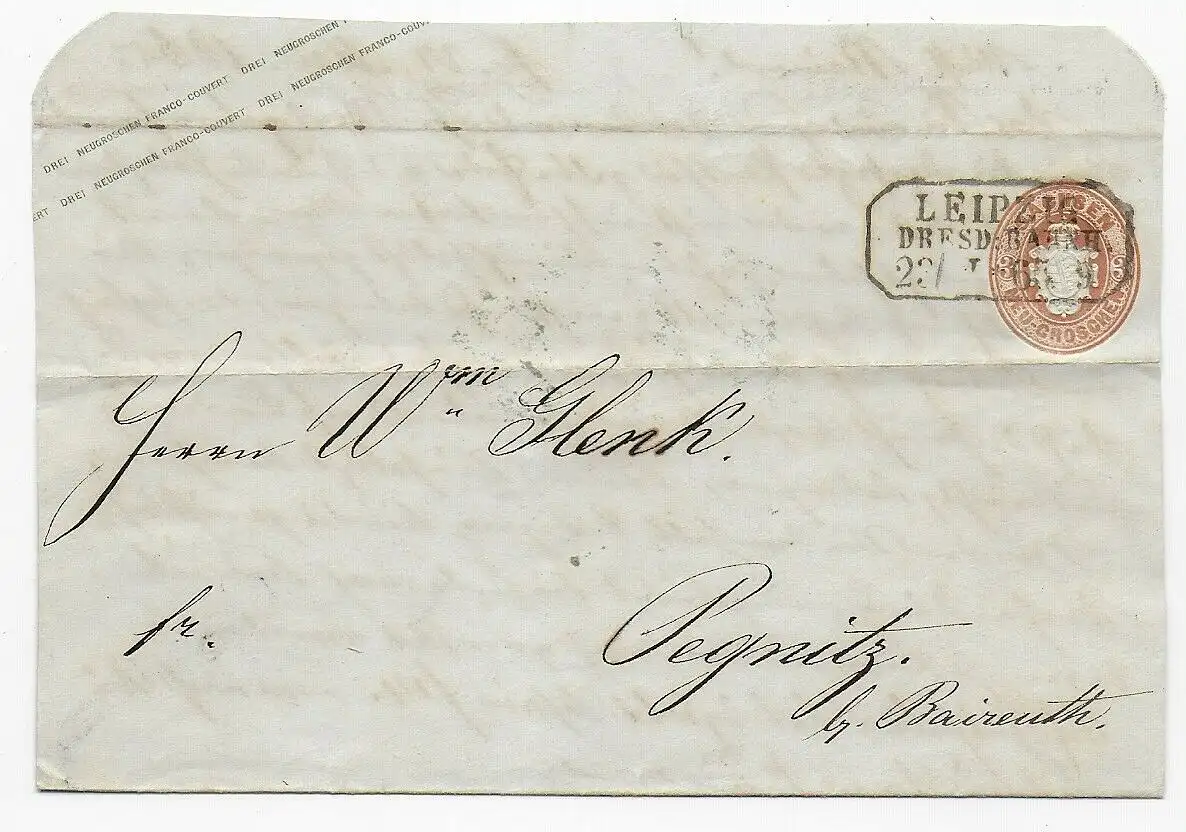 DREI NEUGROSCHEN FRANCO-COUVERT DREI NEUGROSCHEN
ERT DREI NEUGROSCHEN FRANCO-COUVERT DREI NEUGROSCHEN FRANCO-COUV
LEIPZIG
DRESD. BAHNH.
3 3
NEU-GROSCHEN
Herrn Wm Glenk.
fr.
Pegnitz.
b. Baireuth.